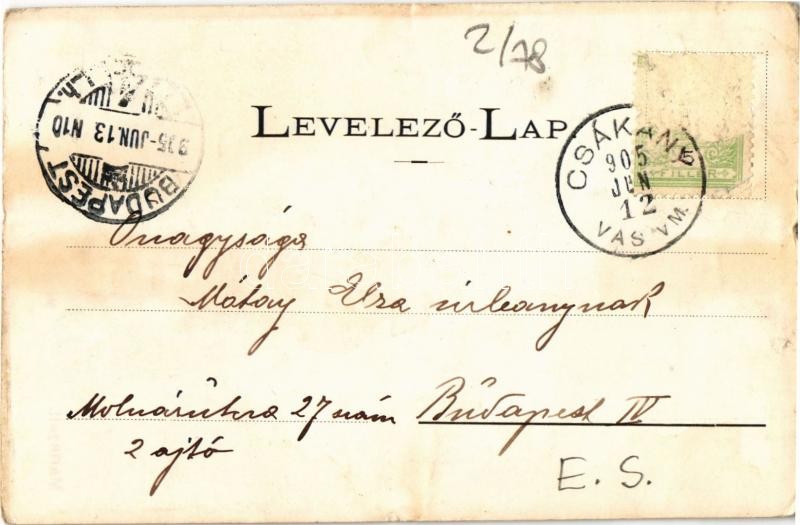 2/78
LEVELEZŐ-LAP
CSÁKÁNY
905
JUN
12
VAS VM.
5
FILLÉR
BUDAPEST
905-JUN.13. N10
Őnagysága
Mátay Elza úrleanynak
Molnárútcza 27 szám Budapest IV
2 ajtó
E. S.